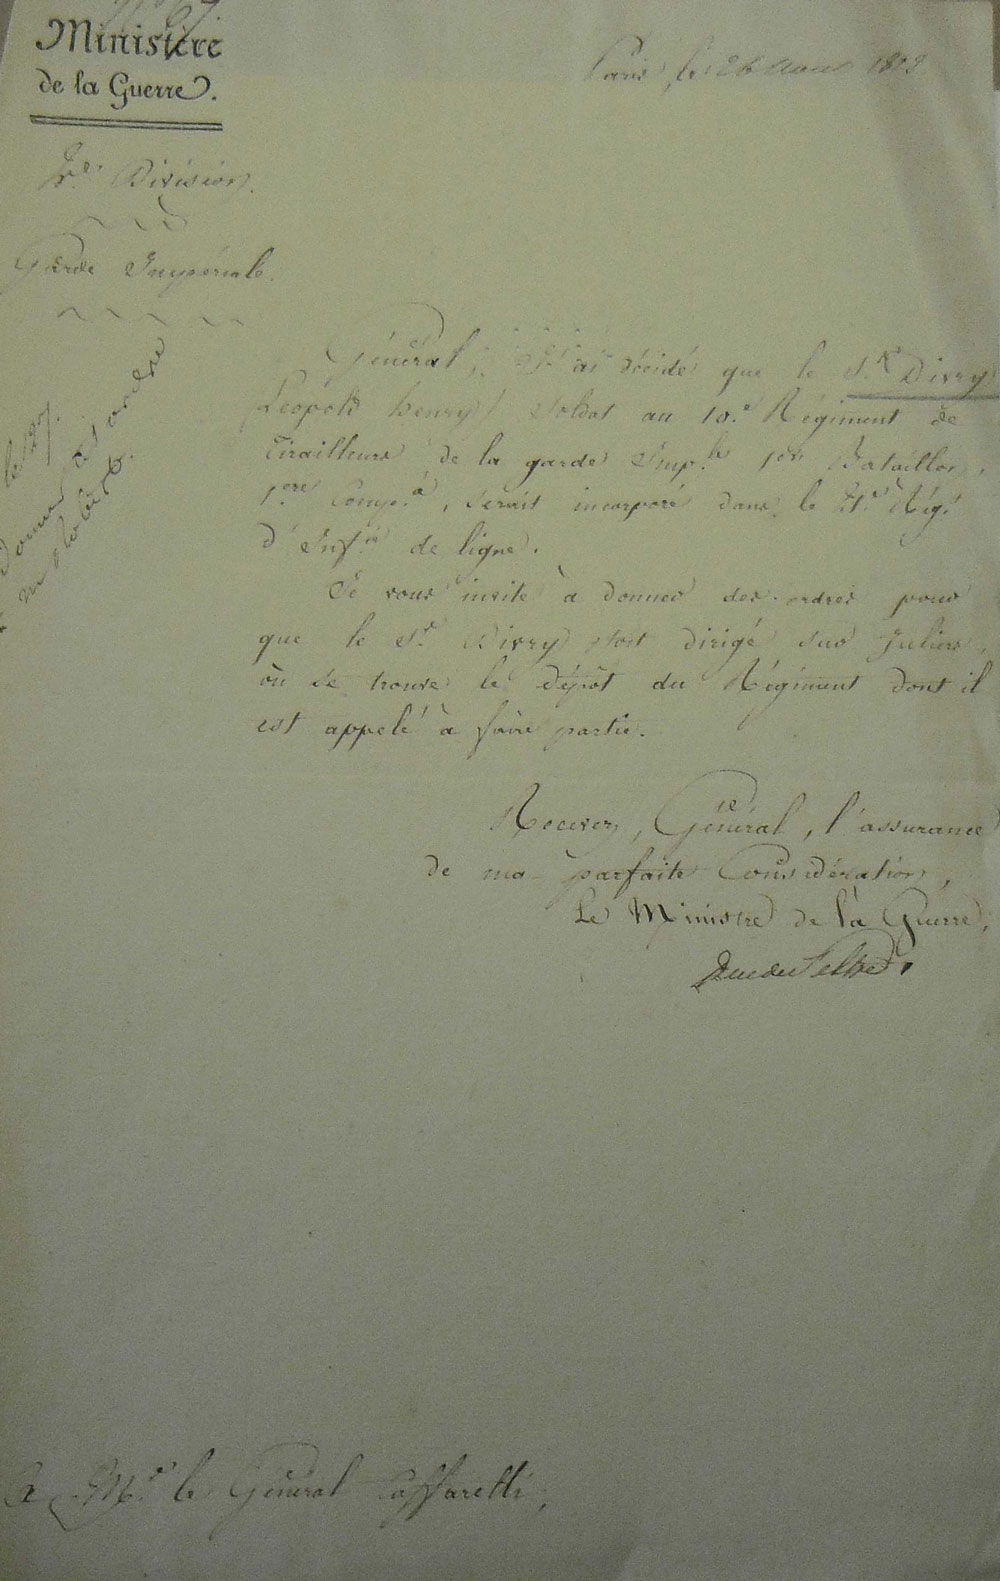 Ministère
de la Guerre.
Paris, le 26 Aout 1813
Division.
Garde Impériale.
Donner des ordres
Général, J'ai décidé que le Sr. Divry
(Léopold henry) soldat au 10.e Régiment de
Tirailleurs de la garde Imp.le 1er Bataillon,
1ere Comp.e, serait incorporé dans le Régt.
d'Inf.ie de ligne.
Je vous invite à donner des ordres pour
que le Sr. Divry soit dirigé sur Juliers,
où se trouve le dépôt du Régiment dont il
est appelé à faire partie.
Recevez, Général, l'assurance
de ma parfaite Considération,
Le Ministre de la Guerre,
Duc de Feltre.
A Mr. le Général Caffarelli,